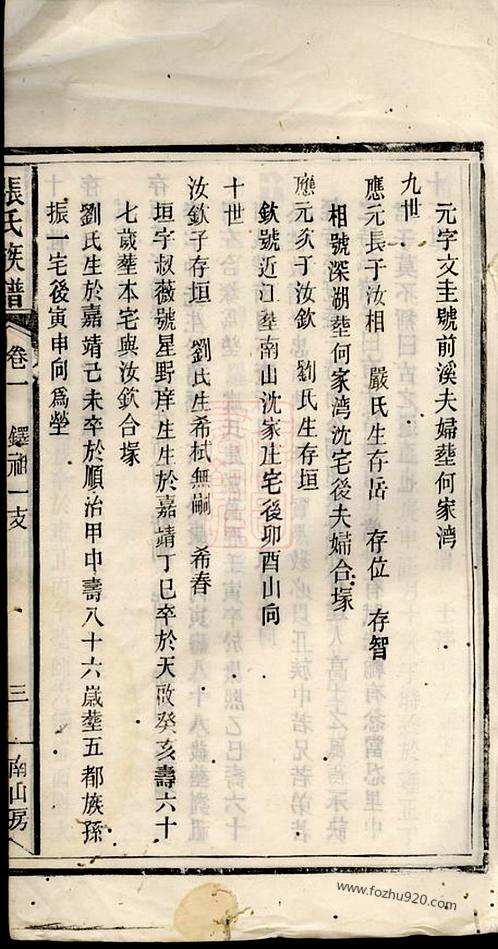 元字文圭號前溪夫婦塟何家湾
九世
應元長子汝相 嚴氏生存岳 存位 存智
相號深湖塟何家湾沈宅後夫婦合塜
應元次子汝欽 劉氏生存垣
欽號近江塟南山沈家庄宅後卯酉山向
十世
汝欽子存垣 劉氏生希栻無嗣 希春
垣字叔薇號星野庠生生於嘉靖丁巳卒於天啟癸亥壽六十
七歲塟本宅與汝欽合塜
劉氏生於嘉靖己未卒於順治甲申壽八十六歲塟五都族孫
振一宅後寅申向爲塋
張氏族譜 卷一 鐸祖一支 三 南山房
www.fozhu920.com